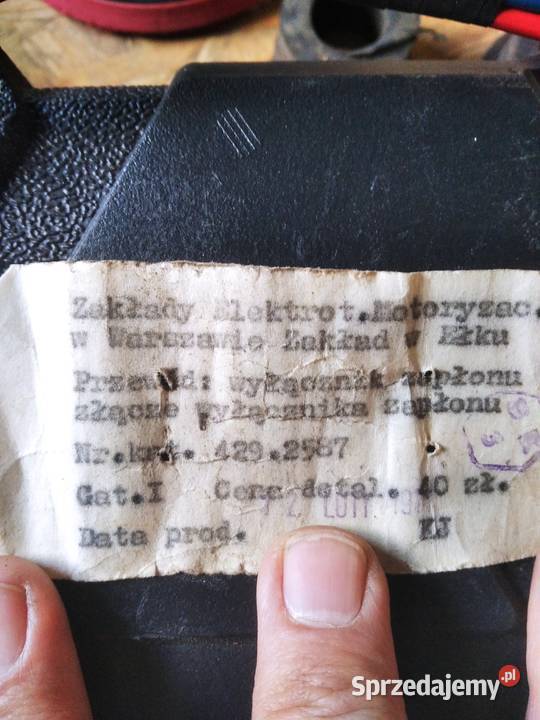 Zakłady Elektrot.Motoryzac.
w Warszawie Zakład w Ełku
Przewód: wyłącznik zapłonu
złącze wyłącznika zapłonu
Nr.kat. 429.2567
Gat.I Cena detal. 40 zł.
Data prod. KJ
Sprzedajemy.pl